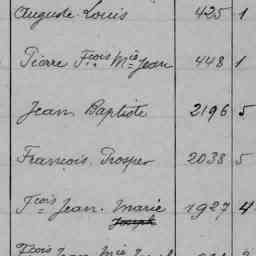 Auguste Louis 425 1
Pierre Fçois Mie Jean 448 1
Jean Baptiste 2196 5
François Prosper 2038 5
Fçois Jean Marie 1927 4
Joseph